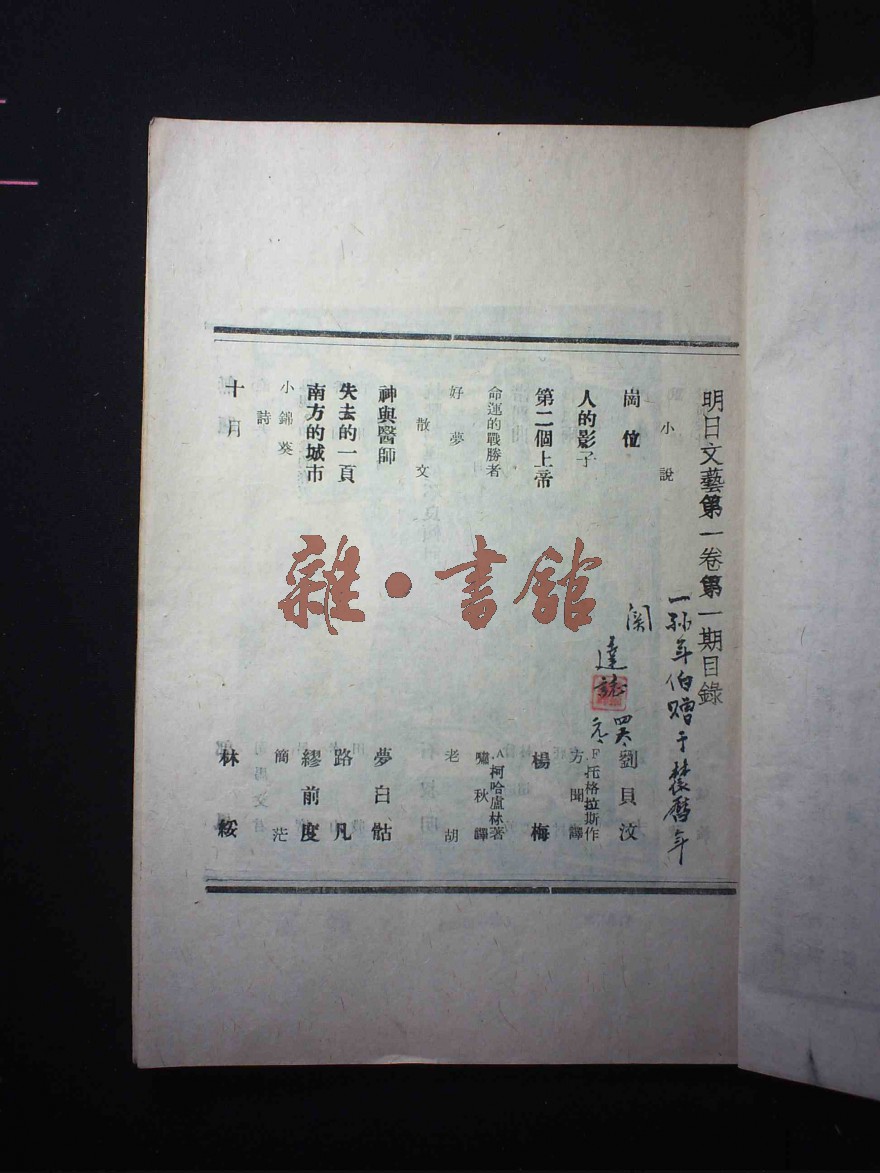 明日文藝第一卷第一期目錄
小說
崗位 劉貝汶
人的影子 F.托格拉斯作
方聞譯
第二個上帝 楊梅
命運的戰勝者 A.柯哈盧林著
嘯秋譯
好夢 老胡
散文
神與醫師 夢白骷
失去的一頁 路凡
南方的城市 繆前度
小錦葵 簡茫
詩
十月 林綏
年伯贈于
舊年
達誌
雜·書館